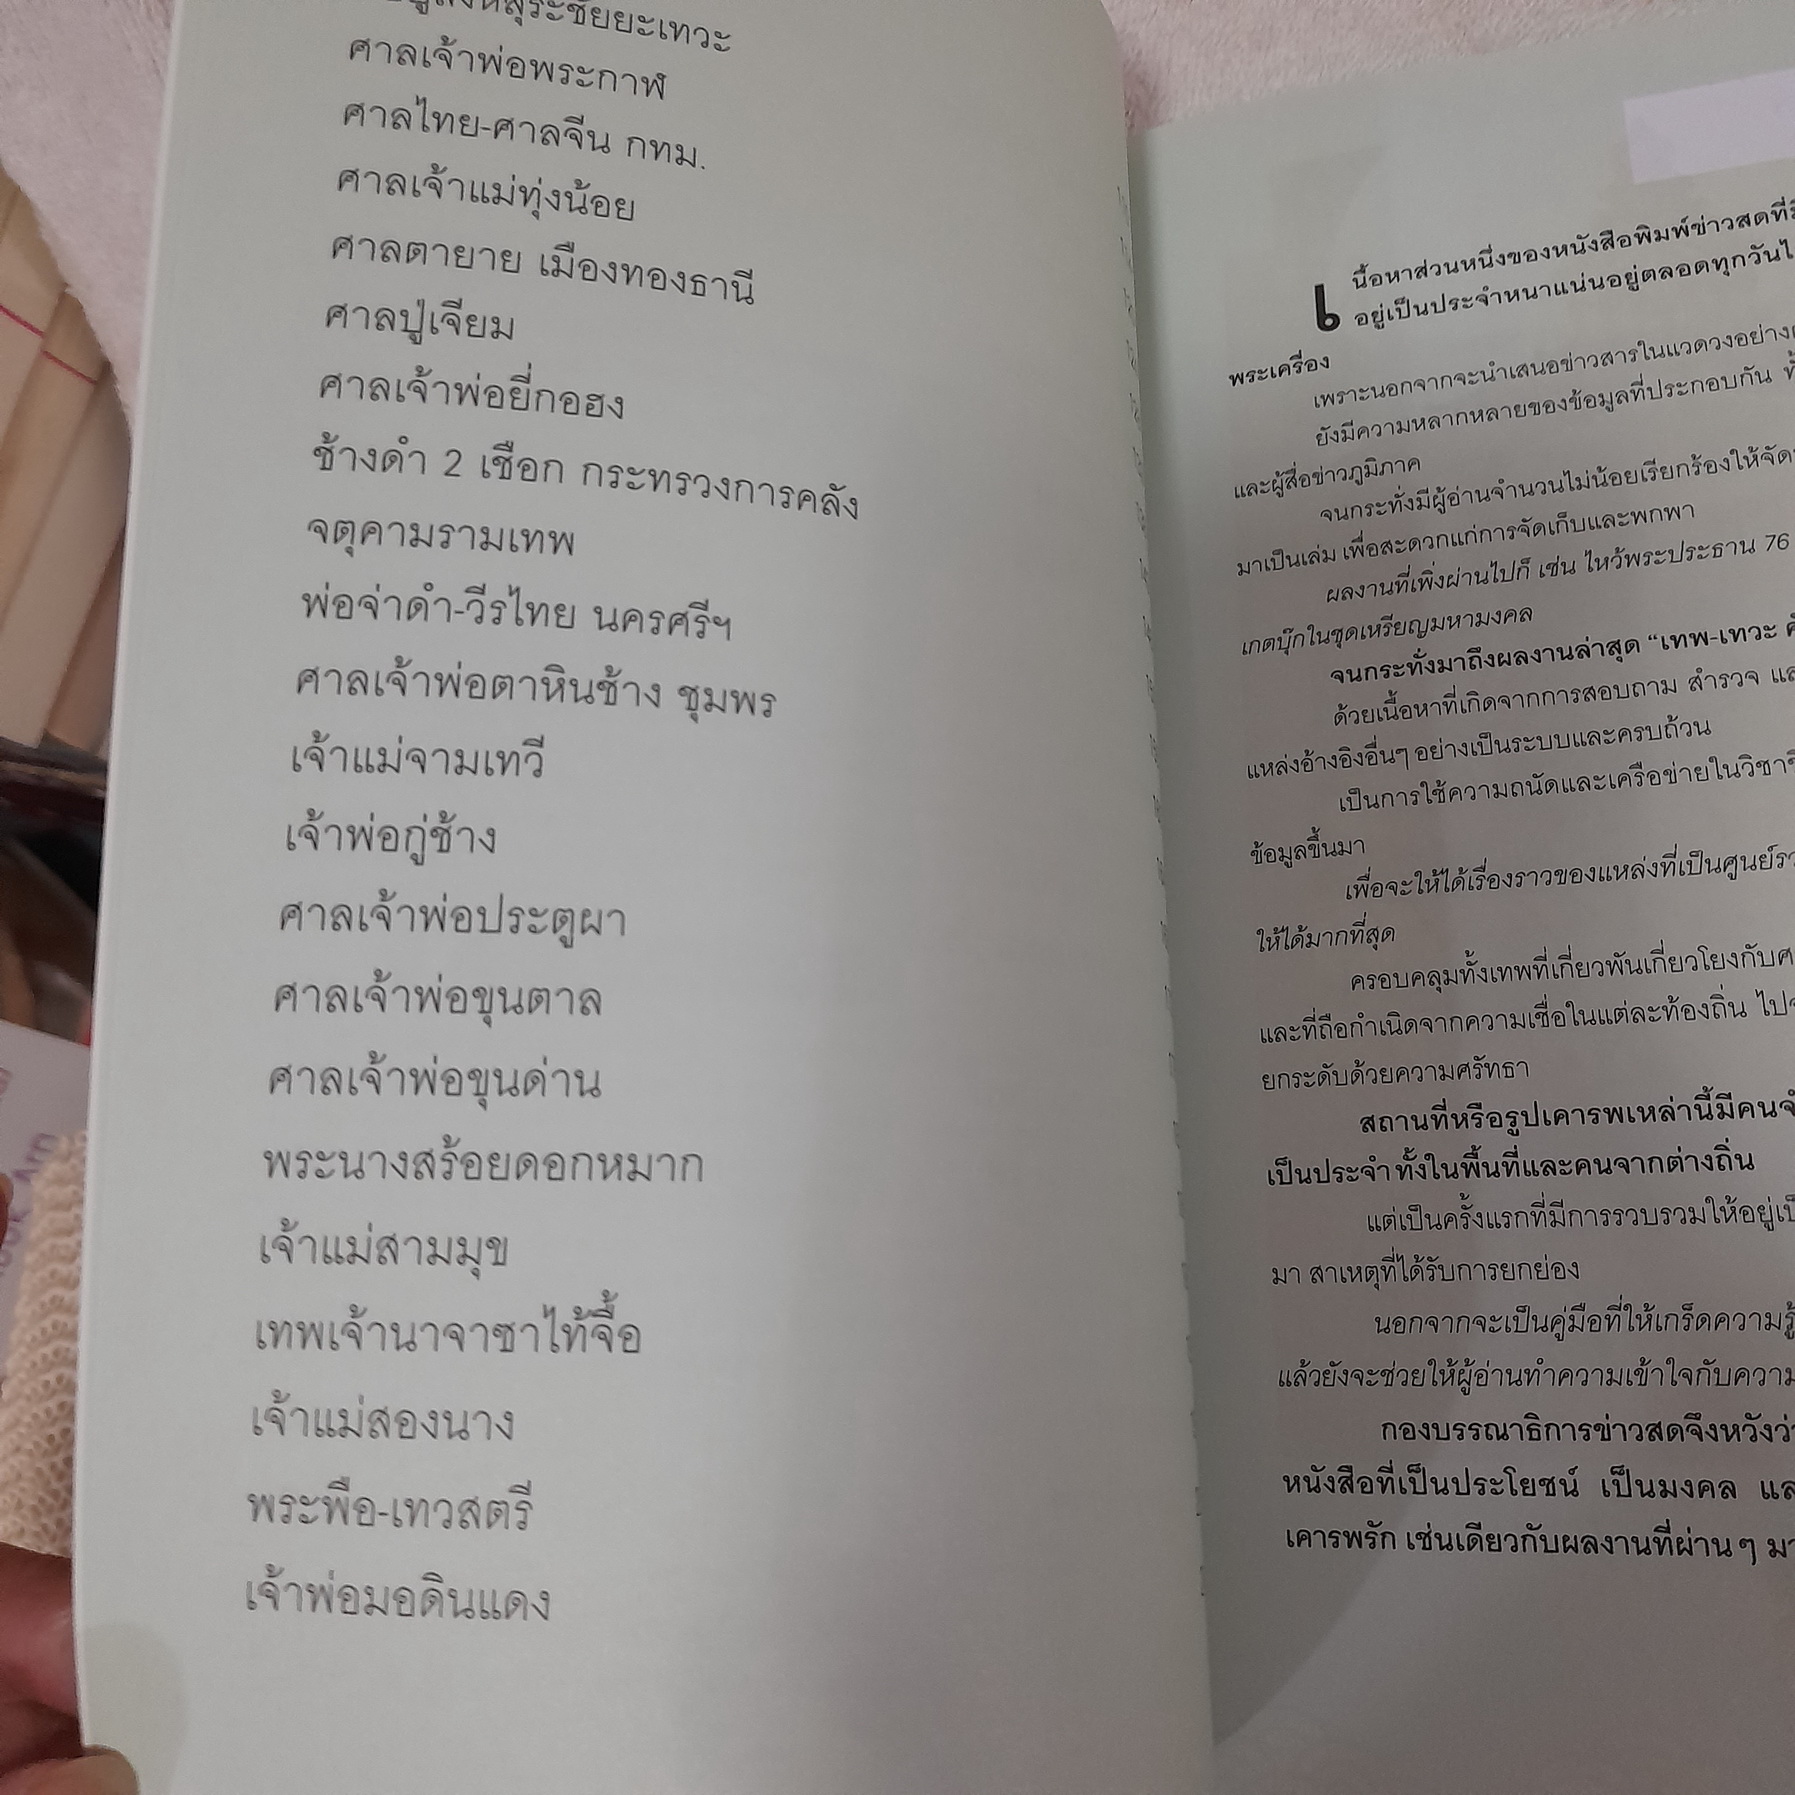 ศาลเจ้าพ่อพระกาฬ
ศาลไทย-ศาลจีน กทม.
ศาลเจ้าแม่ทุ่งน้อย
ศาลตายาย เมืองทองธานี
ศาลปู่เจียม
ศาลเจ้าพ่อยี่กอฮง
ช้างดำ 2 เชือก กระทรวงการคลัง
จตุคามรามเทพ
พ่อจ่าดำ-วีรไทย นครศรีฯ
ศาลเจ้าพ่อตาหินช้าง ชุมพร
เจ้าแม่จามเทวี
เจ้าพ่อกู่ช้าง
ศาลเจ้าพ่อประตูผา
ศาลเจ้าพ่อขุนตาล
ศาลเจ้าพ่อขุนด่าน
พระนางสร้อยดอกหมาก
เจ้าแม่สามมุข
เทพเจ้านาจาซาไท้จื้อ
เจ้าแม่สองนาง
พระพือ-เทวสตรี
เจ้าพ่อมอดินแดง
เนื้อหาส่วนหนึ่งของหนังสือพิมพ์ข่าวสดที่
อยู่เป็นประจำหนาแน่นอยู่ตลอดทุกวัน
พระเครื่อง
เพราะนอกจากจะนำเสนอข่าวสารในแวดวงอย่าง
ยังมีความหลากหลายของข้อมูลที่ประกอบกัน
และผู้สื่อข่าวภูมิภาค
จนกระทั่งมีผู้อ่านจำนวนไม่น้อยเรียกร้องให้จัด
มาเป็นเล่ม เพื่อสะดวกแก่การจัดเก็บและพกพา
ผลงานที่เพิ่งผ่านไปก็ เช่น ไหว้พระประธาน 76
เกตบุ๊กในชุดเหรียญมหามงคล
จนกระทั่งมาถึงผลงานล่าสุด “เทพ-เทวะ
ด้วยเนื้อหาที่เกิดจากการสอบถาม สำรวจ
แหล่งอ้างอิงอื่นๆ อย่างเป็นระบบและครบถ้วน
เป็นการใช้ความถนัดและเครือข่ายในวิชาชี
ข้อมูลขึ้นมา
เพื่อจะให้ได้เรื่องราวของแหล่งที่เป็นศูนย์รว
ให้ได้มากที่สุด
ครอบคลุมทั้งเทพที่เกี่ยวพันเกี่ยวโยงกับ
และที่ถือกำเนิดจากความเชื่อในแต่ละท้องถิ่น
ยกระดับด้วยความศรัทธา
สถานที่หรือรูปเคารพเหล่านี้มีคน
เป็นประจำ ทั้งในพื้นที่และคนจากต่างถิ่น
แต่เป็นครั้งแรกที่มีการรวบรวมให้อยู่
มา สาเหตุที่ได้รับการยกย่อง
นอกจากจะเป็นคู่มือที่ให้เกร็ดความรู้
แล้วยังจะช่วยให้ผู้อ่านทำความเข้าใจกับความ
กองบรรณาธิการข่าวสดจึงหวังว่
หนังสือที่เป็นประโยชน์ เป็นมงคล
เคารพรัก เช่นเดียวกับผลงานที่ผ่านๆ มา